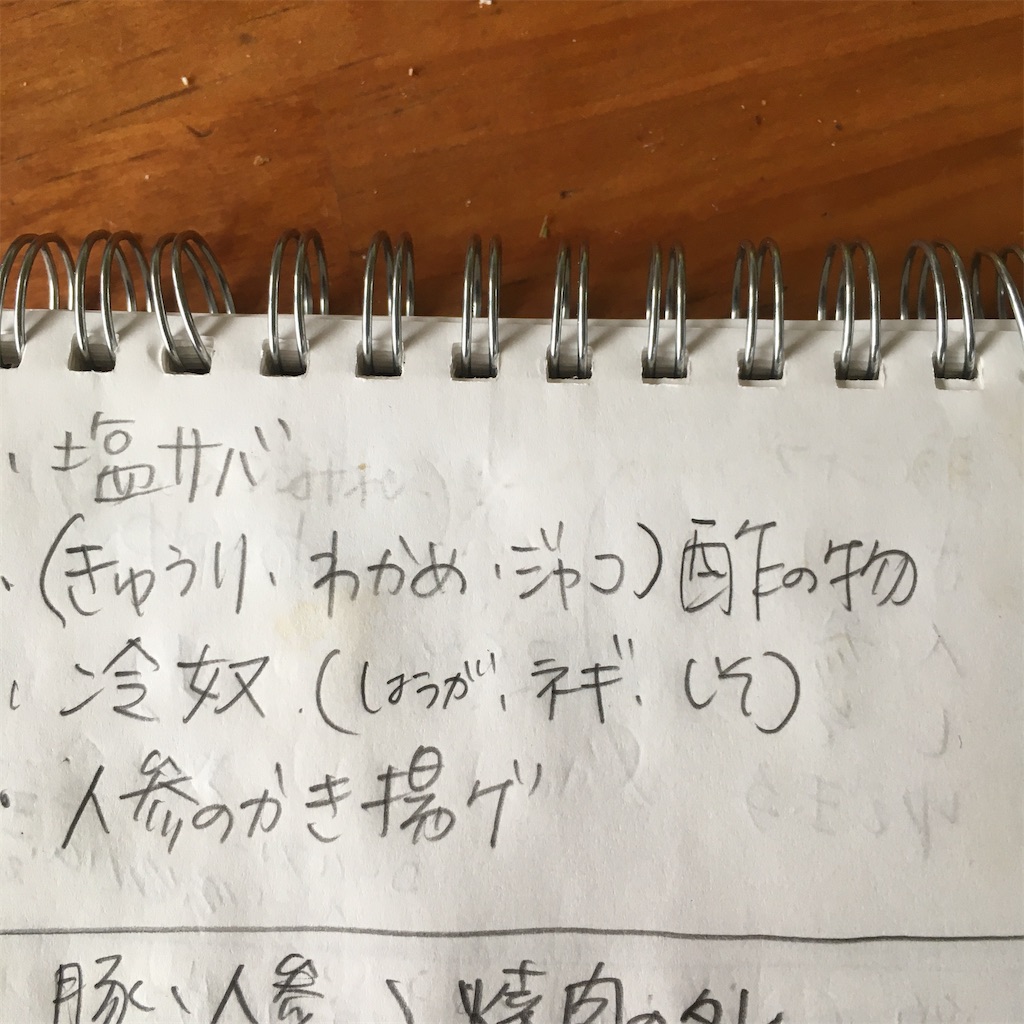 ・塩サバ
・(きゅうり、わかめ・ジャコ)酢の物
・冷奴.(しょうが、ネギ、しそ)
・人参のかき揚げ
豚、人参、焼肉のタレ